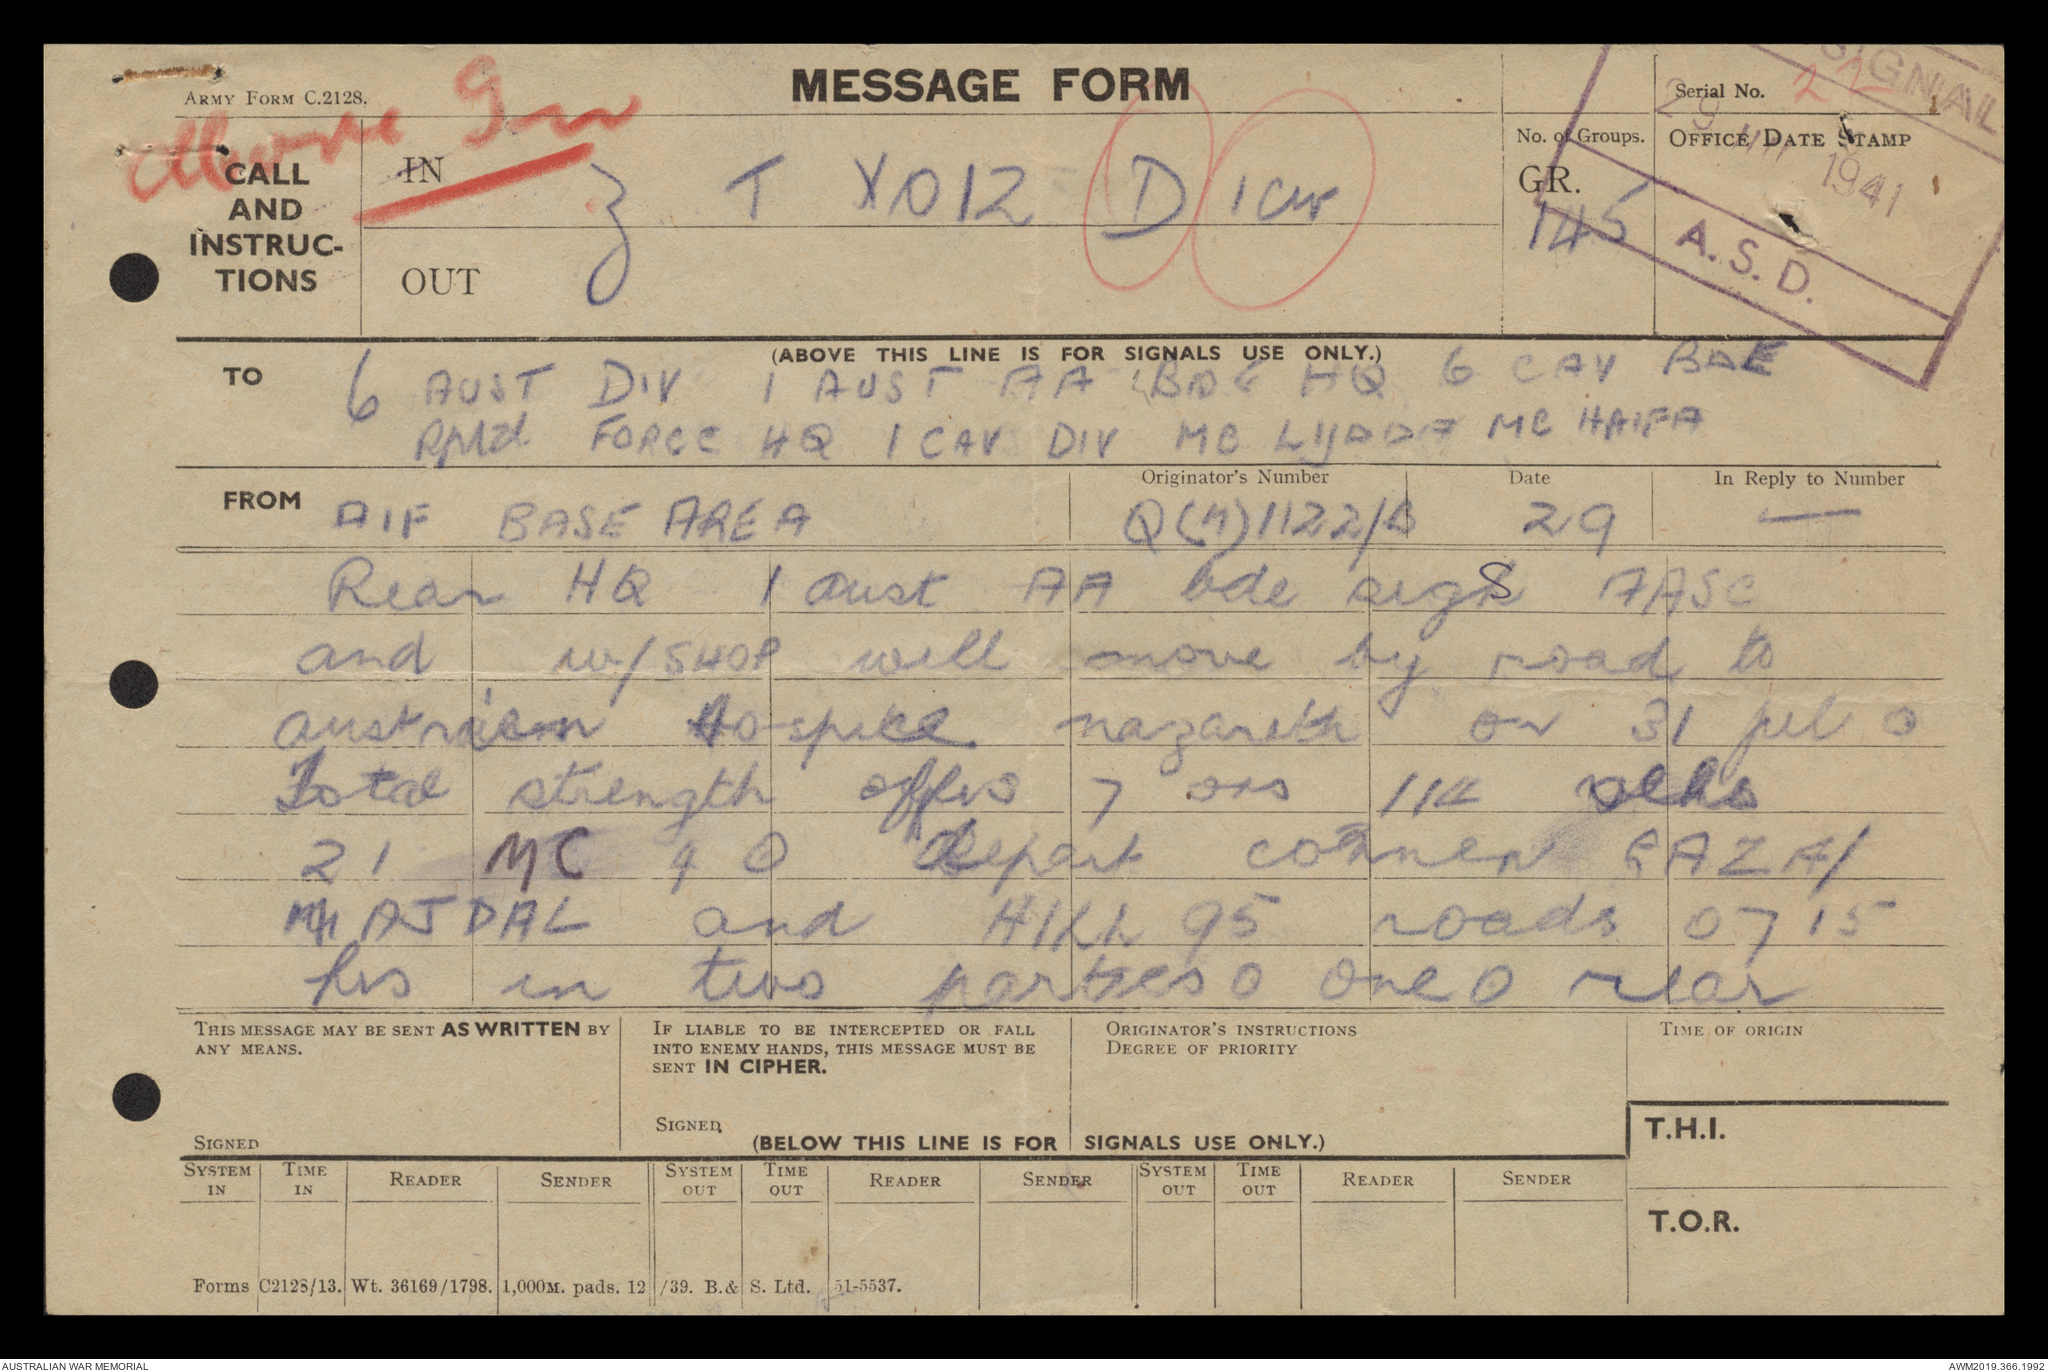 ARMY FORM C.2128.
MESSAGE FORM
Serial No. 22
SIGNAL
29 VII 1941
A. S. D.
CALL
AND
INSTRUC-
TIONS
IN
OUT
T XO12 D 1 Cav
No. of Groups.
GR.
145
OFFICE DATE STAMP
(ABOVE THIS LINE IS FOR SIGNALS USE ONLY.)
TO 6 AUST DIV 1 AUST AA BDE HQ 6 CAV BDE
Rptd FORCE HQ 1 CAV DIV MC LYDDA MC HAIFA
FROM AIF BASE AREA
Originator's Number Q(M)1122/B
Date 29
In Reply to Number —
Rear HQ 1 aust AA bde sigs AASC
and w/SHOP will move by road to
australian Hospice nazareth on 31 jul o
Total strength offrs 7 ors 114 vehs
21 MC 9 O Depart corner GAZA/
MAJDAL and HILL 95 roads 0715
hrs in two parties o one o rear
THIS MESSAGE MAY BE SENT AS WRITTEN BY
ANY MEANS.
SIGNED
IF LIABLE TO BE INTERCEPTED OR FALL
INTO ENEMY HANDS, THIS MESSAGE MUST BE
SENT IN CIPHER.
SIGNED
ORIGINATOR'S INSTRUCTIONS
DEGREE OF PRIORITY
TIME OF ORIGIN
(BELOW THIS LINE IS FOR SIGNALS USE ONLY.)
T.H.I.
T.O.R.
SYSTEM IN TIME IN READER SENDER SYSTEM OUT TIME OUT READER SENDER SYSTEM OUT TIME OUT READER SENDER
Forms C2128/13. Wt. 36169/1798. 1,000M. pads. 12/39. B.& S. Ltd. 51-5537.
AUSTRALIAN WAR MEMORIAL
AWM2019.366.1992